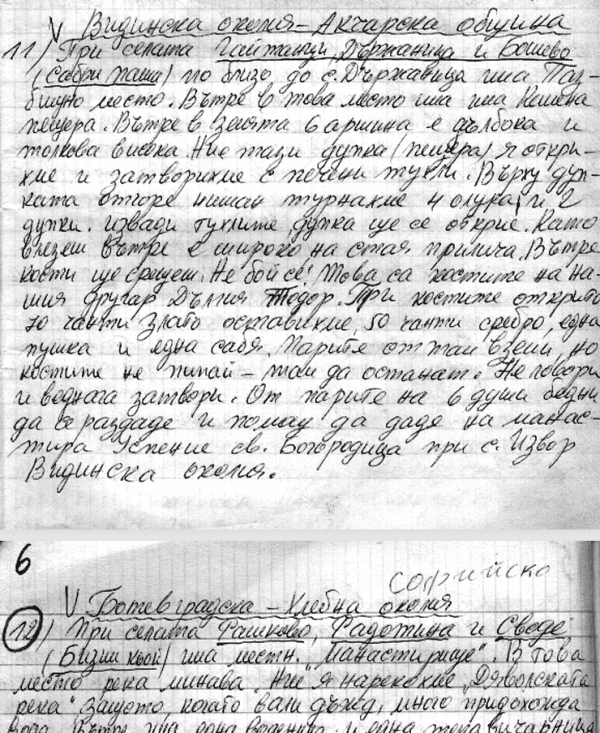 V Видинска околия – Акчарска община
11) При селата Гайтанци, Държаница и Бошево
(Сабри паша) по близо до с. Държавица има Паз-
бищно место. Вътре в това место има има Камена
пещера. Вътре в земята 6 аршина е дълбока и
толкова висока. Ние тази дупка (пещера) я откри-
хме и затворихме с печени тухли. Върху дуп-
ката отгоре нишан турнахме 4 олука и 2
дупки. извади тухлите, дупка ще се открие. Като
влезеш вътре е широко на стая прилича. Вътре
кости ще срещеш. Не бой се! Това са костите на на-
шия другар Дългия Тодор. При костите открито
70 чанти злато оставихме, 50 чанти сребро, една
пушка и една сабя. Парите от там вземи, но
костите не пипай – там да останат. Не говори
и веднага затвори. От парите на 6 души бедни
да се раздаде и помощ да даде на манас-
тира Успение св. Богородица при с. Извор
Видинска околия.
6
софийско
V Ботевградска – Хлебна околия
12) При селата Рашково, Радотина и Своде
(Бизим кьой) има местн. "Манастирище". В това
место река минава. Ние я нарекохме "Дяволската
река" защото когато вали дъжд, много придохожда
вода. Вътре има една воденица и една тепавичарница